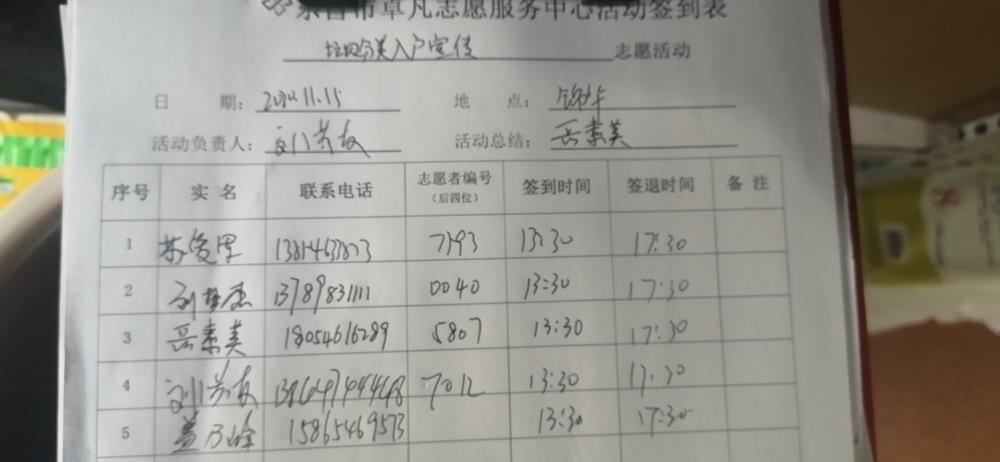 营市卓凡志愿服务中心活动签到表
垃圾分类入户宣传 志愿活动
日 期: 11.15 地 点: 锦华
活动负责人: 刘兰友 活动总结: 岳素美
序号 实 名 联系电话 志愿者编号（后四位） 签到时间 签退时间 备 注
1 7193 13:30 17:30
2 刘 13789831111 0040 13:30 17:30
3 岳素美 18054616289 5807 13:30 17:30
4 刘兰友 7012 13:30 17:30
5 盖乃峰 15865469573 13:30 17:30